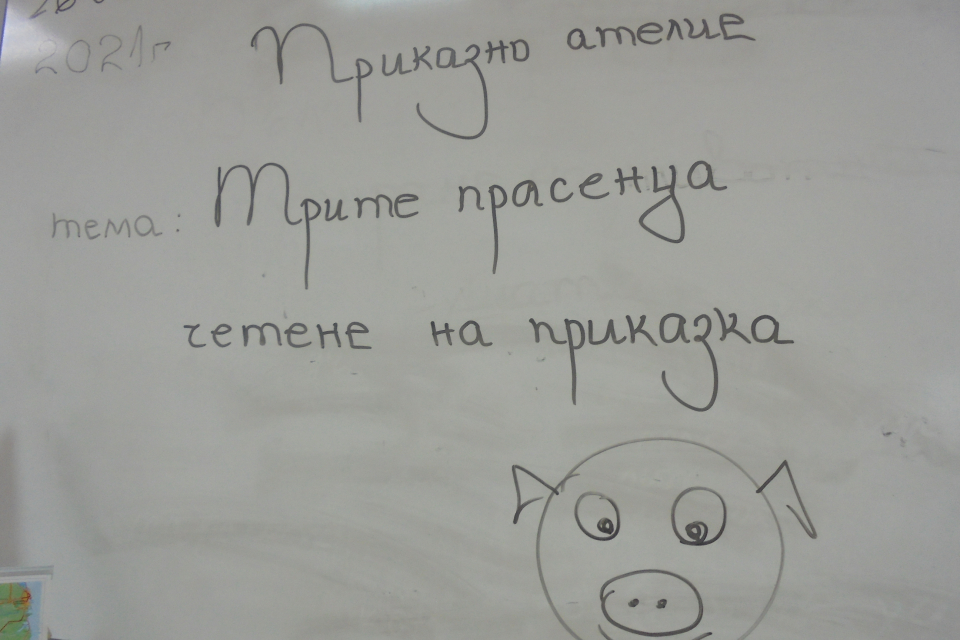 2021г Приказно ателие
тема: Трите прасенца
четене на приказка